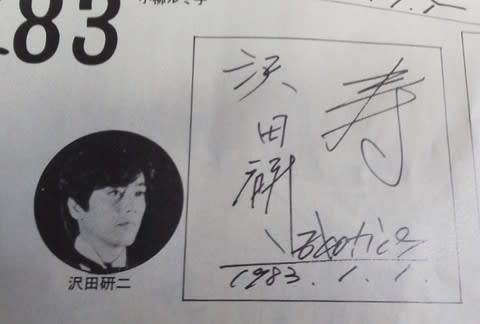 83
寿
沢田研二
Exotics
1983. 1. 1.
沢田研二